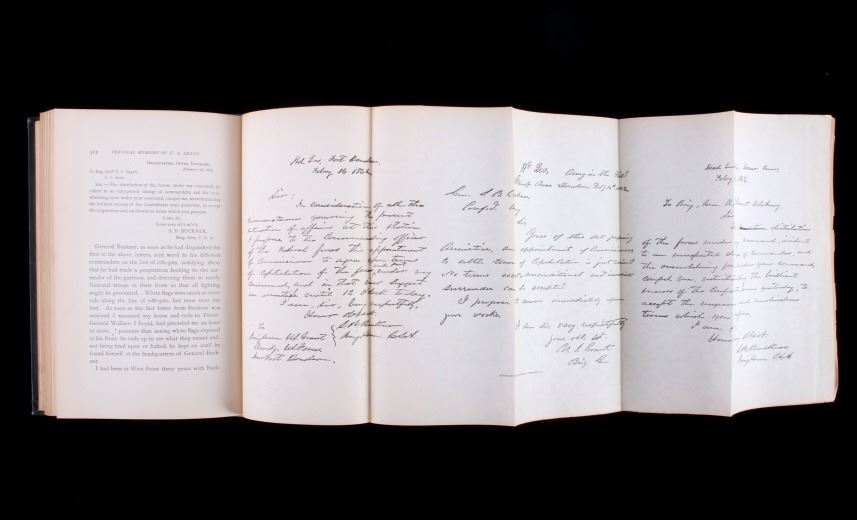 312 PERSONAL MEMOIRS OF U. S. GRANT.
HEADQUARTERS, DOVER, TENNESSEE,
February 16, 1862.
To Brig. Gen'l U. S. GRANT,
U. S. Army.
SIR:—The distribution of the forces under my command, in-
cident to an unexpected change of commanders, and the over-
whelming force under your command, compel me, notwithstanding
the brilliant success of the Confederate arms yesterday, to accept
the ungenerous and unchivalrous terms which you propose.
I am, sir,
Your very ob't se'v't,
S. B. BUCKNER,
Brig. Gen. C. S. A.
General Buckner, as soon as he had dispatched the
first of the above letters, sent word to his different
commanders on the line of rifle-pits, notifying them
that he had made a proposition looking to the sur-
render of the garrison, and directing them to notify
National troops in their front so that all fighting
might be prevented. White flags were stuck at inter-
vals along the line of rifle-pits, but none over the
fort. As soon as the last letter from Buckner was
received I mounted my horse and rode to Dover.
General Wallace, I found, had preceded me an hour
or more. I presume that, seeing white flags exposed
in his front, he rode up to see what they meant and
not being fired upon or halted, he kept on until he
found himself at the headquarters of General Buck-
ner.
I had been at West Point three years with Buck-
Hd Qrs, Fort Donelson,
Feby 16 1862
Sir:
In consideration of all the
circumstances governing the present
situation of affairs at this station
I propose to the Commanding Officer
of the Federal forces the appointment
of Commissioners to agree upon terms
of capitulation of the forces under my
command, and in that view suggest
an armistice until 12 o'clock today.
I am, sir, very respectfully,
Your obt sevt
S B Buckner
To
Brigadier U.S. Grant
Comdg US Forces
Near Fort Donelson.
Hd Qrs, Army in the Field
Camp near Donelson, Feby 16th 1862
Gen. S B Buckner
Confed. Army
Sir,
Yours of this date proposing
Armistice, and appointment of Commissioners
to settle terms of Capitulation is just received
No terms except unconditional and immediate
surrender can be accepted.
I propose to move immediately upon
your works.
I am Sir very respectfully
Your obt svt
U. S. Grant
Brig Gen
Head Qrs, Dover, Tenn
Feby 16, 62
To Brig. Genl U.S. Grant
Sir
distribution
of the forces under my command, incident
to an unexpected change of commanders, and
the overwhelming force under your command,
compel me, notwithstanding the brilliant
success of the Confederate yesterday, to
accept the ungenerous and unchivalrous
terms which you propose.
I am,
Your obt
S B Buckner